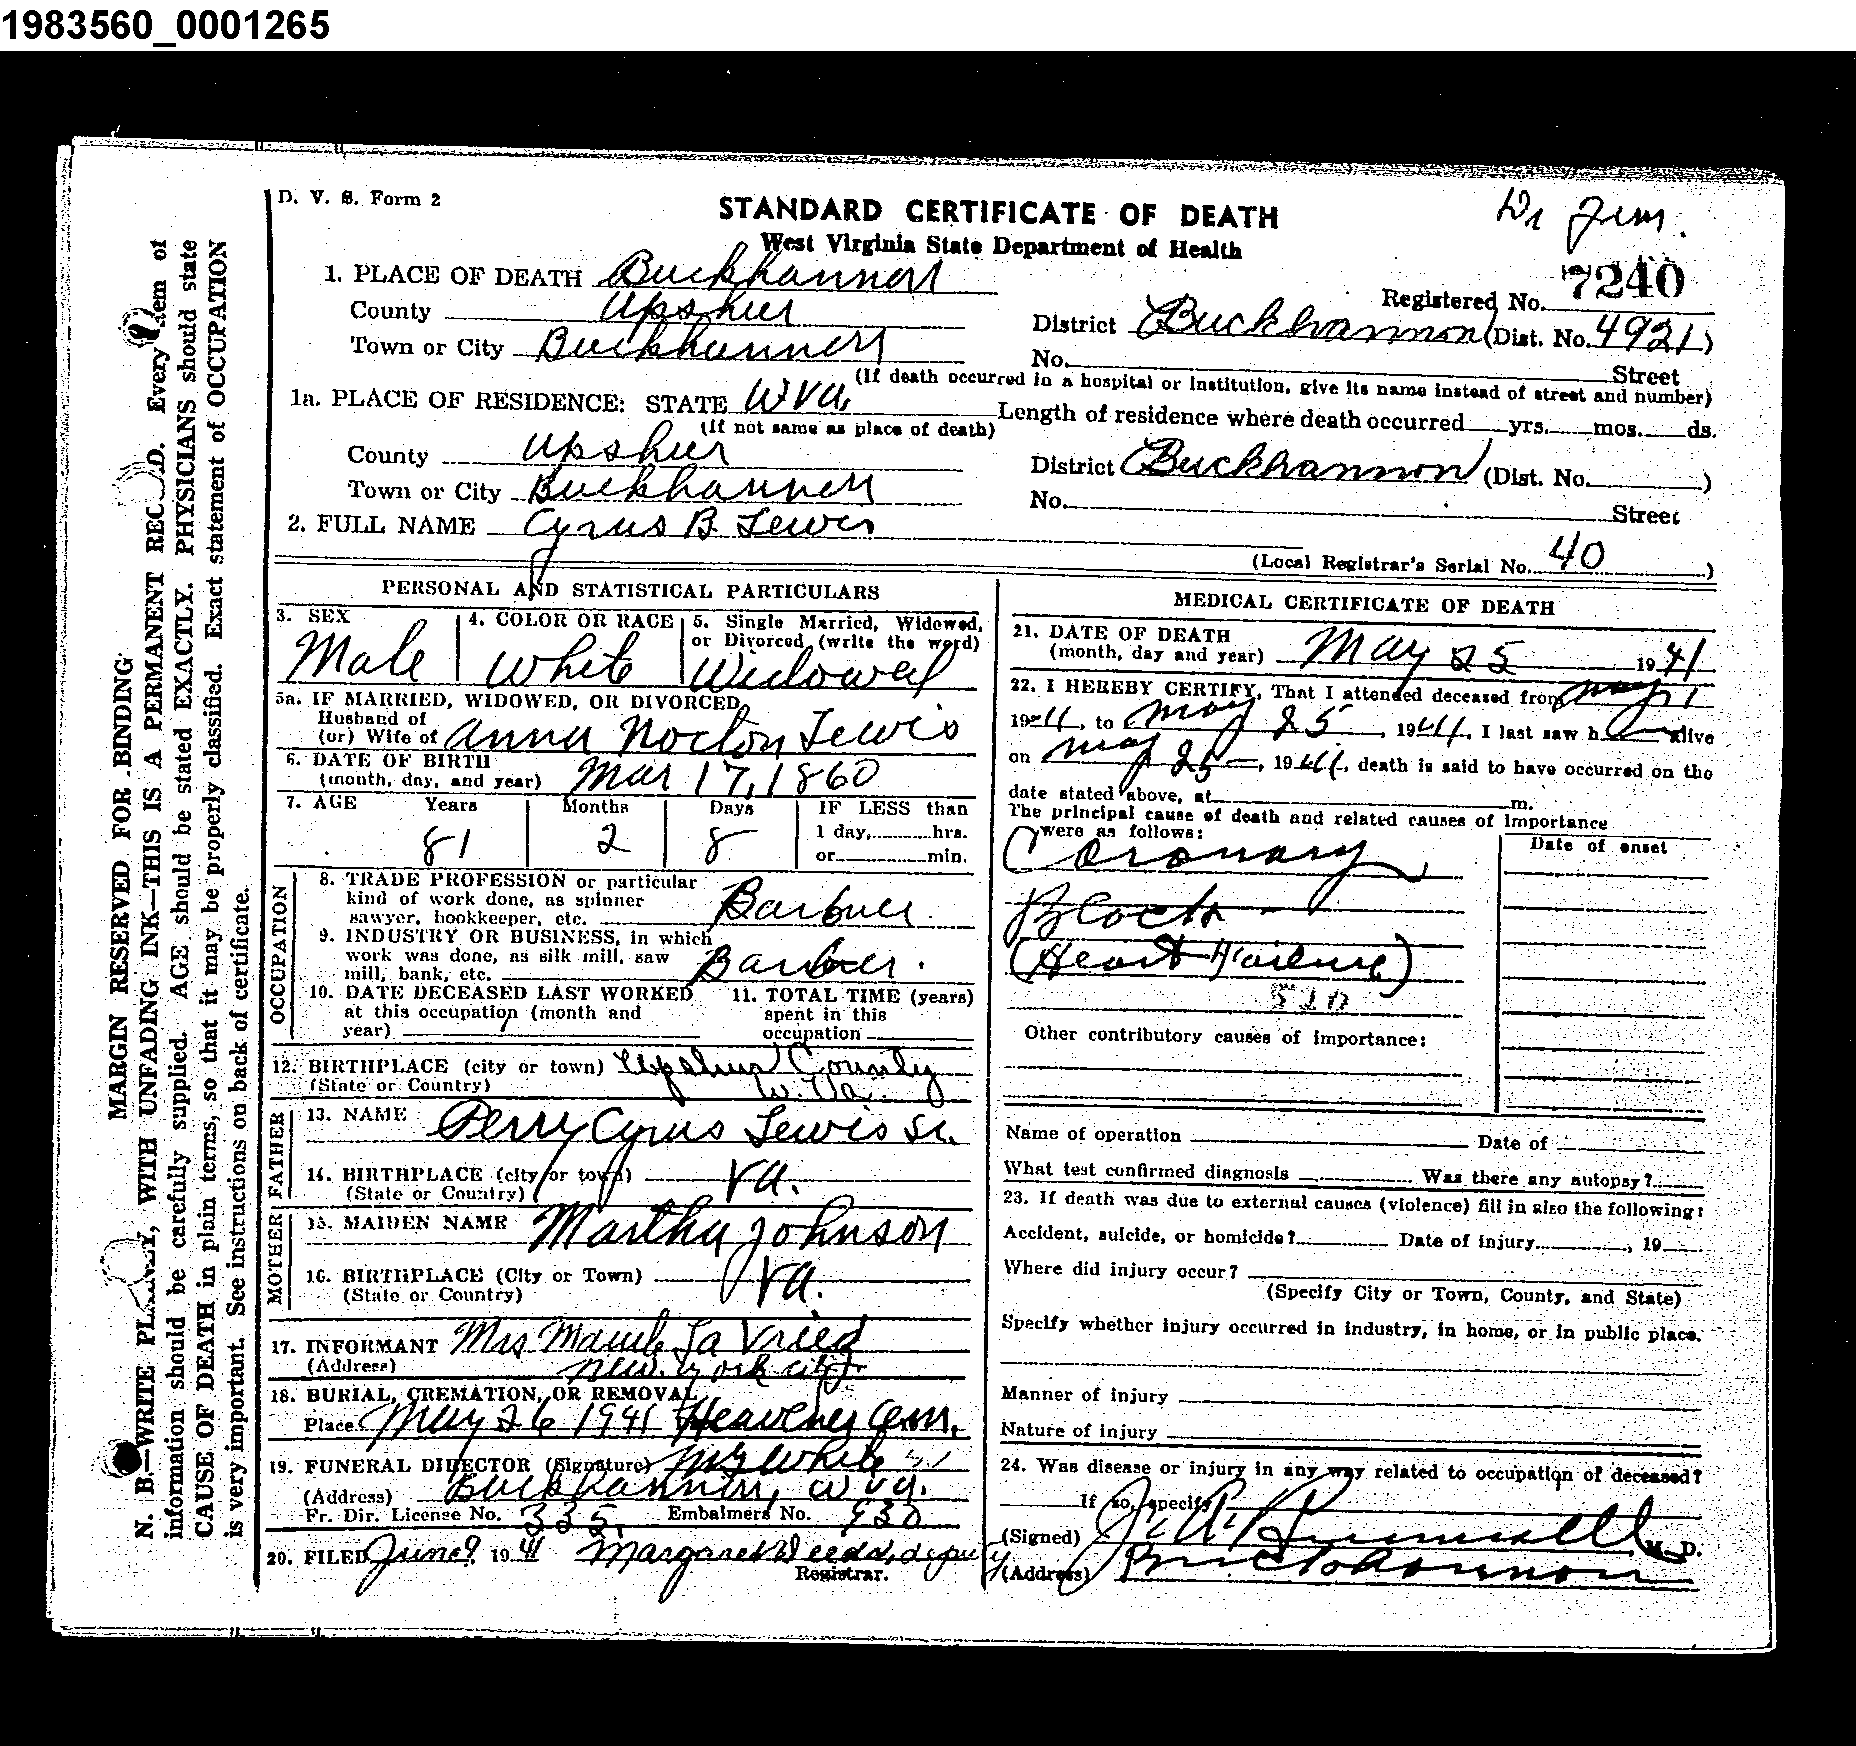 1983560_0001265
D. V. S. Form 2
STANDARD CERTIFICATE OF DEATH
West Virginia State Department of Health
1. PLACE OF DEATH Buckhannon
Registered No. 7240
County Upshur
District Buckhannon (Dist. No. 4921)
Town or City Buckhannon
No. Street
(If death occurred in a hospital or institution, give its name instead of street and number)
1a. PLACE OF RESIDENCE: STATE W Va.
(If not same as place of death)
Length of residence where death occurred yrs. mos. ds.
County Upshur
District Buckhannon (Dist. No. )
Town or City Buckhannon
No. Street
2. FULL NAME Cyrus B Lewis
(Local Registrar's Serial No. 40 )
PERSONAL AND STATISTICAL PARTICULARS
3. SEX Male
4. COLOR OR RACE White
5. Single Married, Widowed, or Divorced (write the word) Widowed
5a. IF MARRIED, WIDOWED, OR DIVORCED
Husband of
(or) Wife of Anna Norton Lewis
6. DATE OF BIRTH
(month, day, and year) Mar 17, 1860
7. AGE Years Months Days IF LESS than
81 2 8 1 day, hrs.
or min.
OCCUPATION
8. TRADE PROFESSION or particular
kind of work done, as spinner
sawyer, bookkeeper, etc. Barber
9. INDUSTRY OR BUSINESS, in which
work was done, as silk mill, saw
mill, bank, etc. Barber.
10. DATE DECEASED LAST WORKED
at this occupation (month and
year)
11. TOTAL TIME (years)
spent in this
occupation
12. BIRTHPLACE (city or town) Upshur County
(State or Country) W. Va.
FATHER
13. NAME Perry Cyrus Lewis Sr.
14. BIRTHPLACE (city or town) Va.
(State or Country)
MOTHER
15. MAIDEN NAME Martha Johnson
16. BIRTHPLACE (City or Town) Va.
(State or Country)
17. INFORMANT Mrs
(Address) New York City.
18. BURIAL, CREMATION, OR REMOVAL
Place May 26 1941 Heavener Cem.
19. FUNERAL DIRECTOR (Signature) White
(Address) Buckhannon, W Va.
Fr. Dir. License No. 335. Embalmers No. 930
20. FILED June 9, 1941 Margaret deputy
Registrar.
MEDICAL CERTIFICATE OF DEATH
21. DATE OF DEATH
(month, day and year) May 25 1941
22. I HEREBY CERTIFY, That I attended deceased from May 1
1941, to May 25, 1941, I last saw h alive
on May 25, 1941, death is said to have occurred on the
date stated above, at m.
The principal cause of death and related causes of importance
were as follows:
Date of onset
Coronary
Block
(Heart Failure)
Other contributory causes of importance:
Name of operation Date of
What test confirmed diagnosis Was there any autopsy?
23. If death was due to external causes (violence) fill in also the following:
Accident, suicide, or homicide? Date of injury , 19
Where did injury occur?
(Specify City or Town, County, and State)
Specify whether injury occurred in industry, in home, or in public place.
Manner of injury
Nature of injury
24. Was disease or injury in any way related to occupation of deceased?
If so, specify
(Signed) M. D.
(Address) Buckhannon
MARGIN RESERVED FOR BINDING
N. B.—WRITE PLAINLY, WITH UNFADING INK—THIS IS A PERMANENT RECORD. Every item of
information should be carefully supplied. AGE should be stated EXACTLY. PHYSICIANS should state
CAUSE OF DEATH in plain terms, so that it may be properly classified. Exact statement of OCCUPATION
is very important. See instructions on back of certificate.